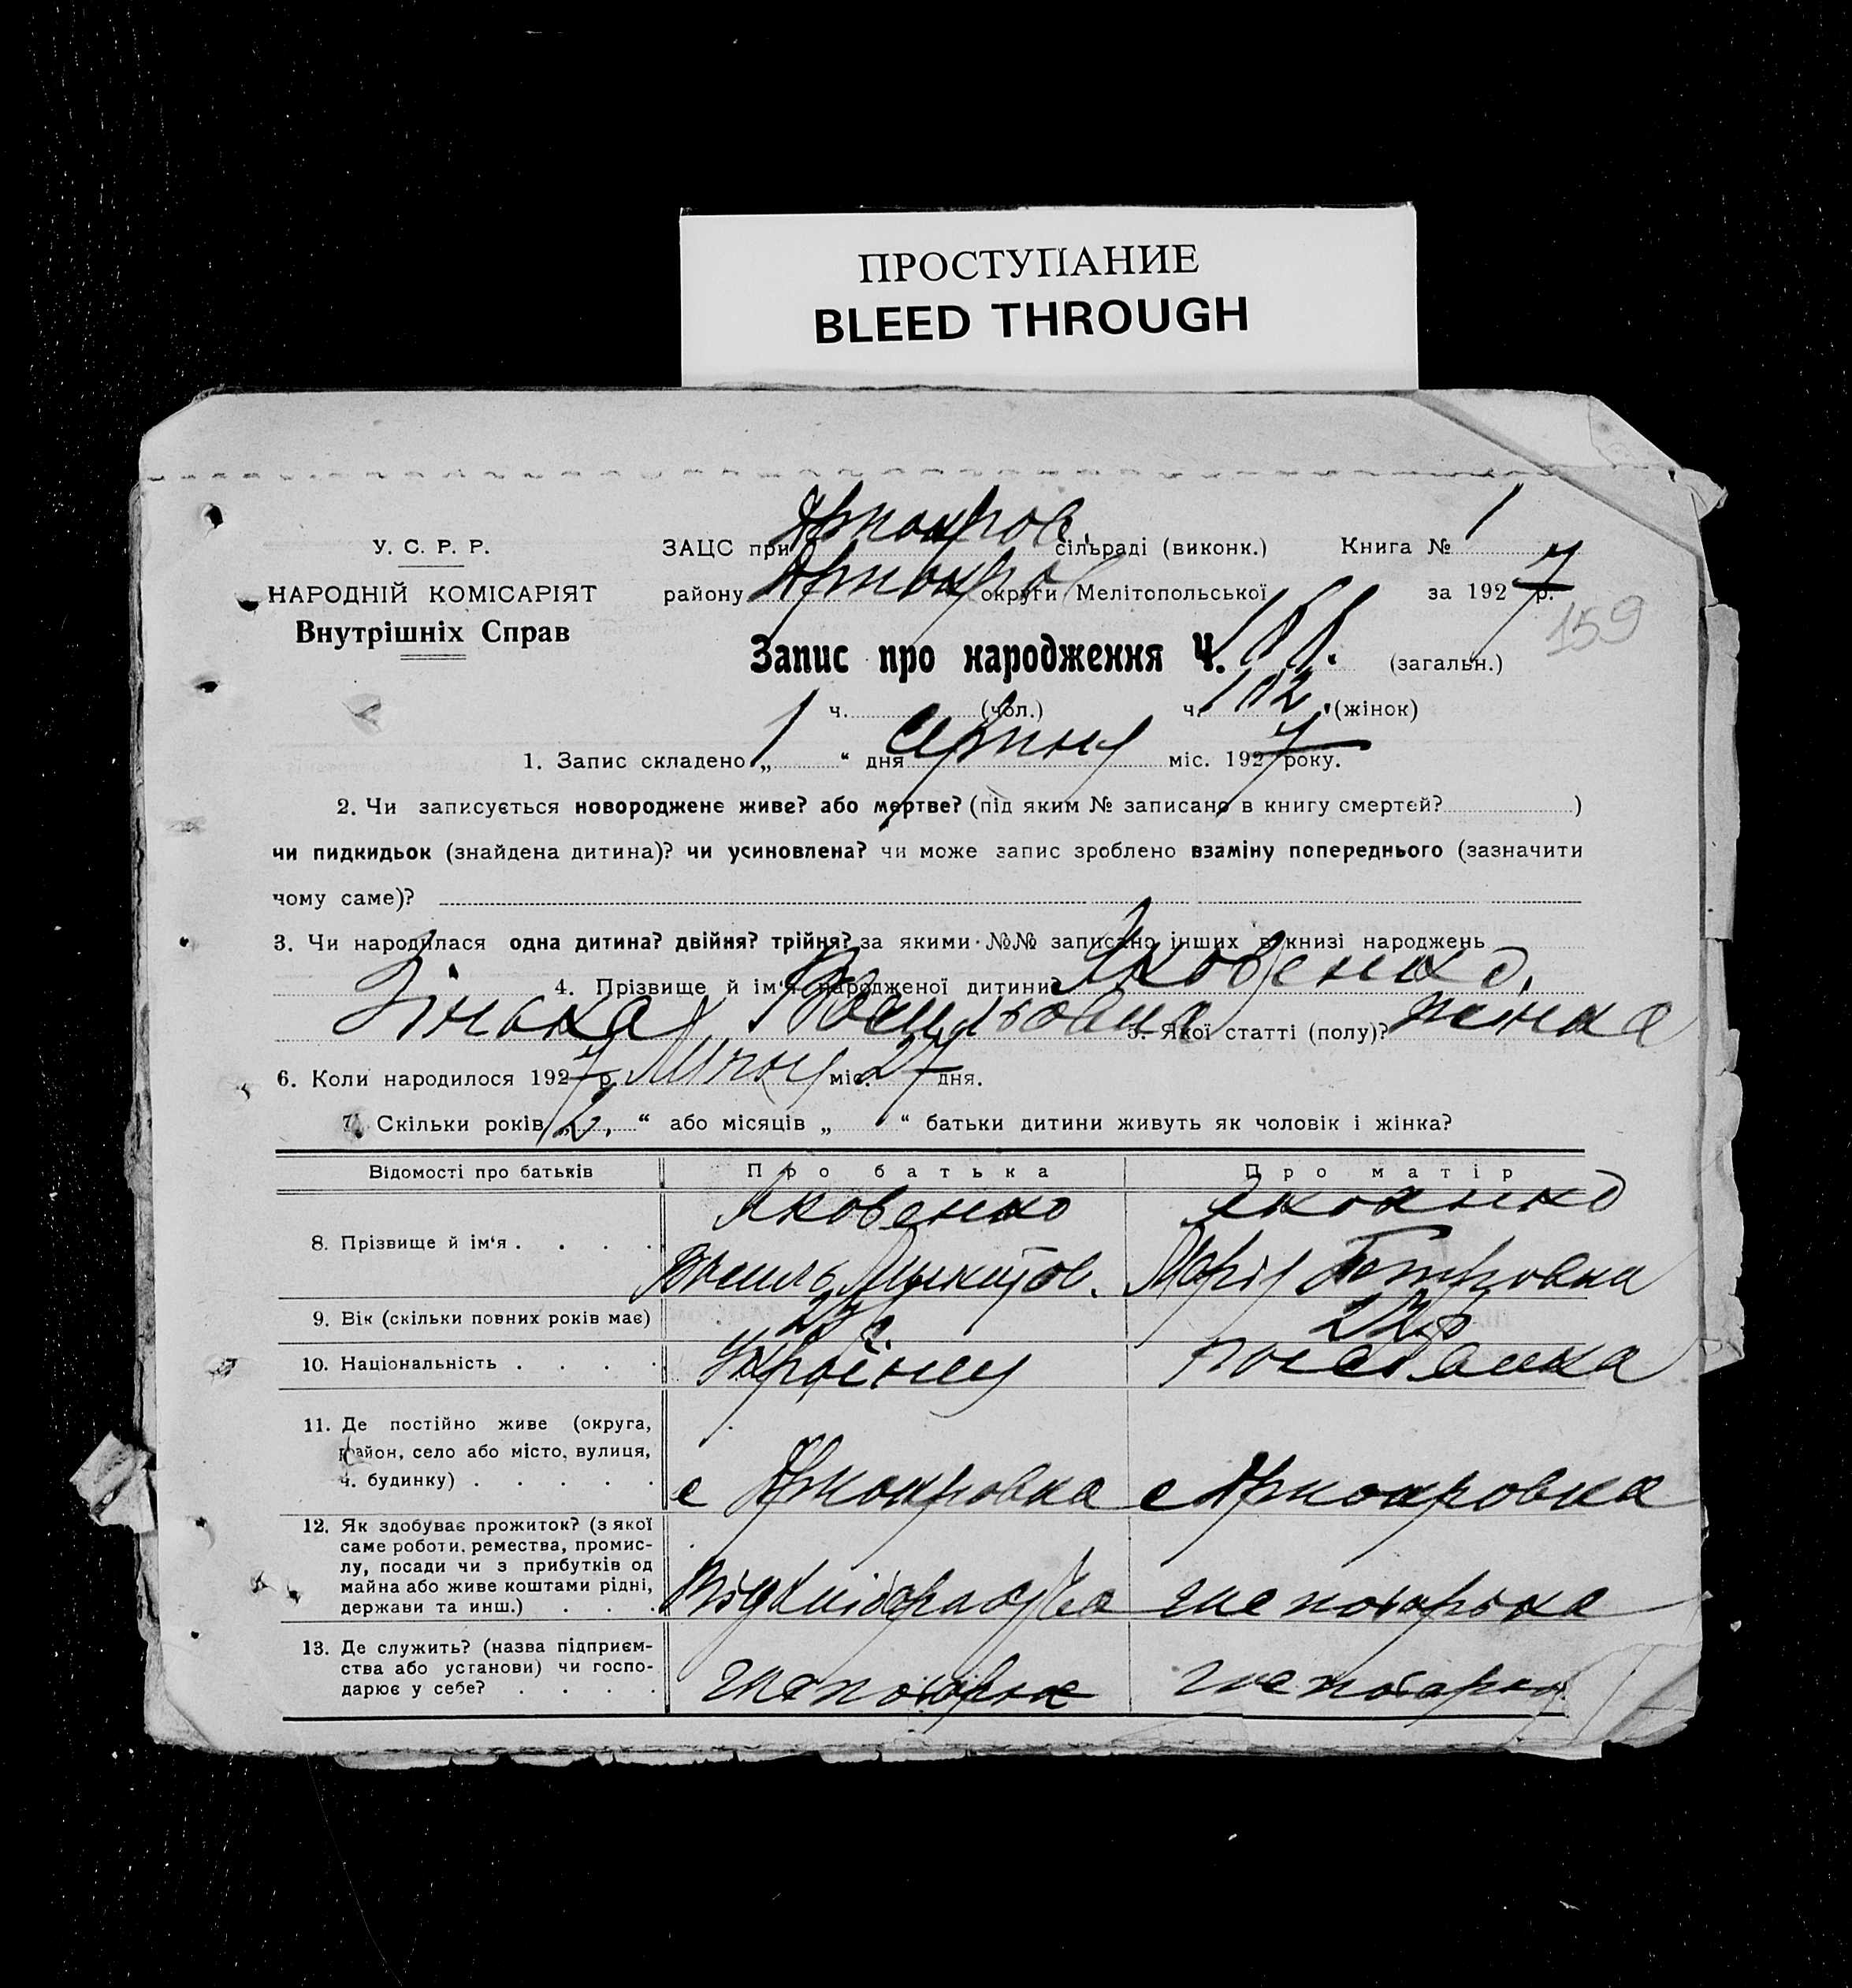 ПРОСТУПАНИЕ
BLEED THROUGH
У. С. Р. Р.
НАРОДНІЙ КОМІСАРІЯТ
Внутрішніх Справ
ЗАЦС при сільраді (виконк.) Книга № 1
району округи Мелітопольської за 1927 р.
159
Запис про народження Ч. (загальн.)
ч. (чол.) ч. 102. (жінок)
1. Запис складено „ 1 “ дня Серпня міс. 1927 року.
2. Чи записується новороджене живе? або мертве? (під яким № записано в книгу смертей? )
чи пидкидьок (знайдена дитина)? чи усиновлена? чи може запис зроблено взаміну попереднього (зазначити
чому саме)?
3. Чи народилася одна дитина? двійня? трійня? за якими №№ записано інших в книзі народжень
4. Прізвище й ім‘я народженої дитини? Яковенко,
Зінька Васильовна 5. Якої статті (полу)? жінка
6. Коли народилося 1927 р. Липня міс. 27 дня.
7. Скільки років „ 2. “ або місяців „ “ батьки дитини живуть як чоловік і жінка?
Відомості про батьків Про батька Про матір
8. Прізвище й ім‘я . . . . Яковенко Яковенко
Василь Марія Петровна
9. Вік (скільки повних років має) 22р
10. Національність . . . . Украінец
11. Де постійно живе (округа,
район, село або місто, вулиця,
ч. будинку) . . . . . с с
12. Як здобуває прожиток? (з якої
саме роботи, ремества, промис-
лу, посади чи з прибутків од
майна або живе коштами рідні,
держави та инш.) . . . Від хліборобства
13. Де служить? (назва підприєм-
ства або установи) чи госпо-
дарює у себе? . . . .